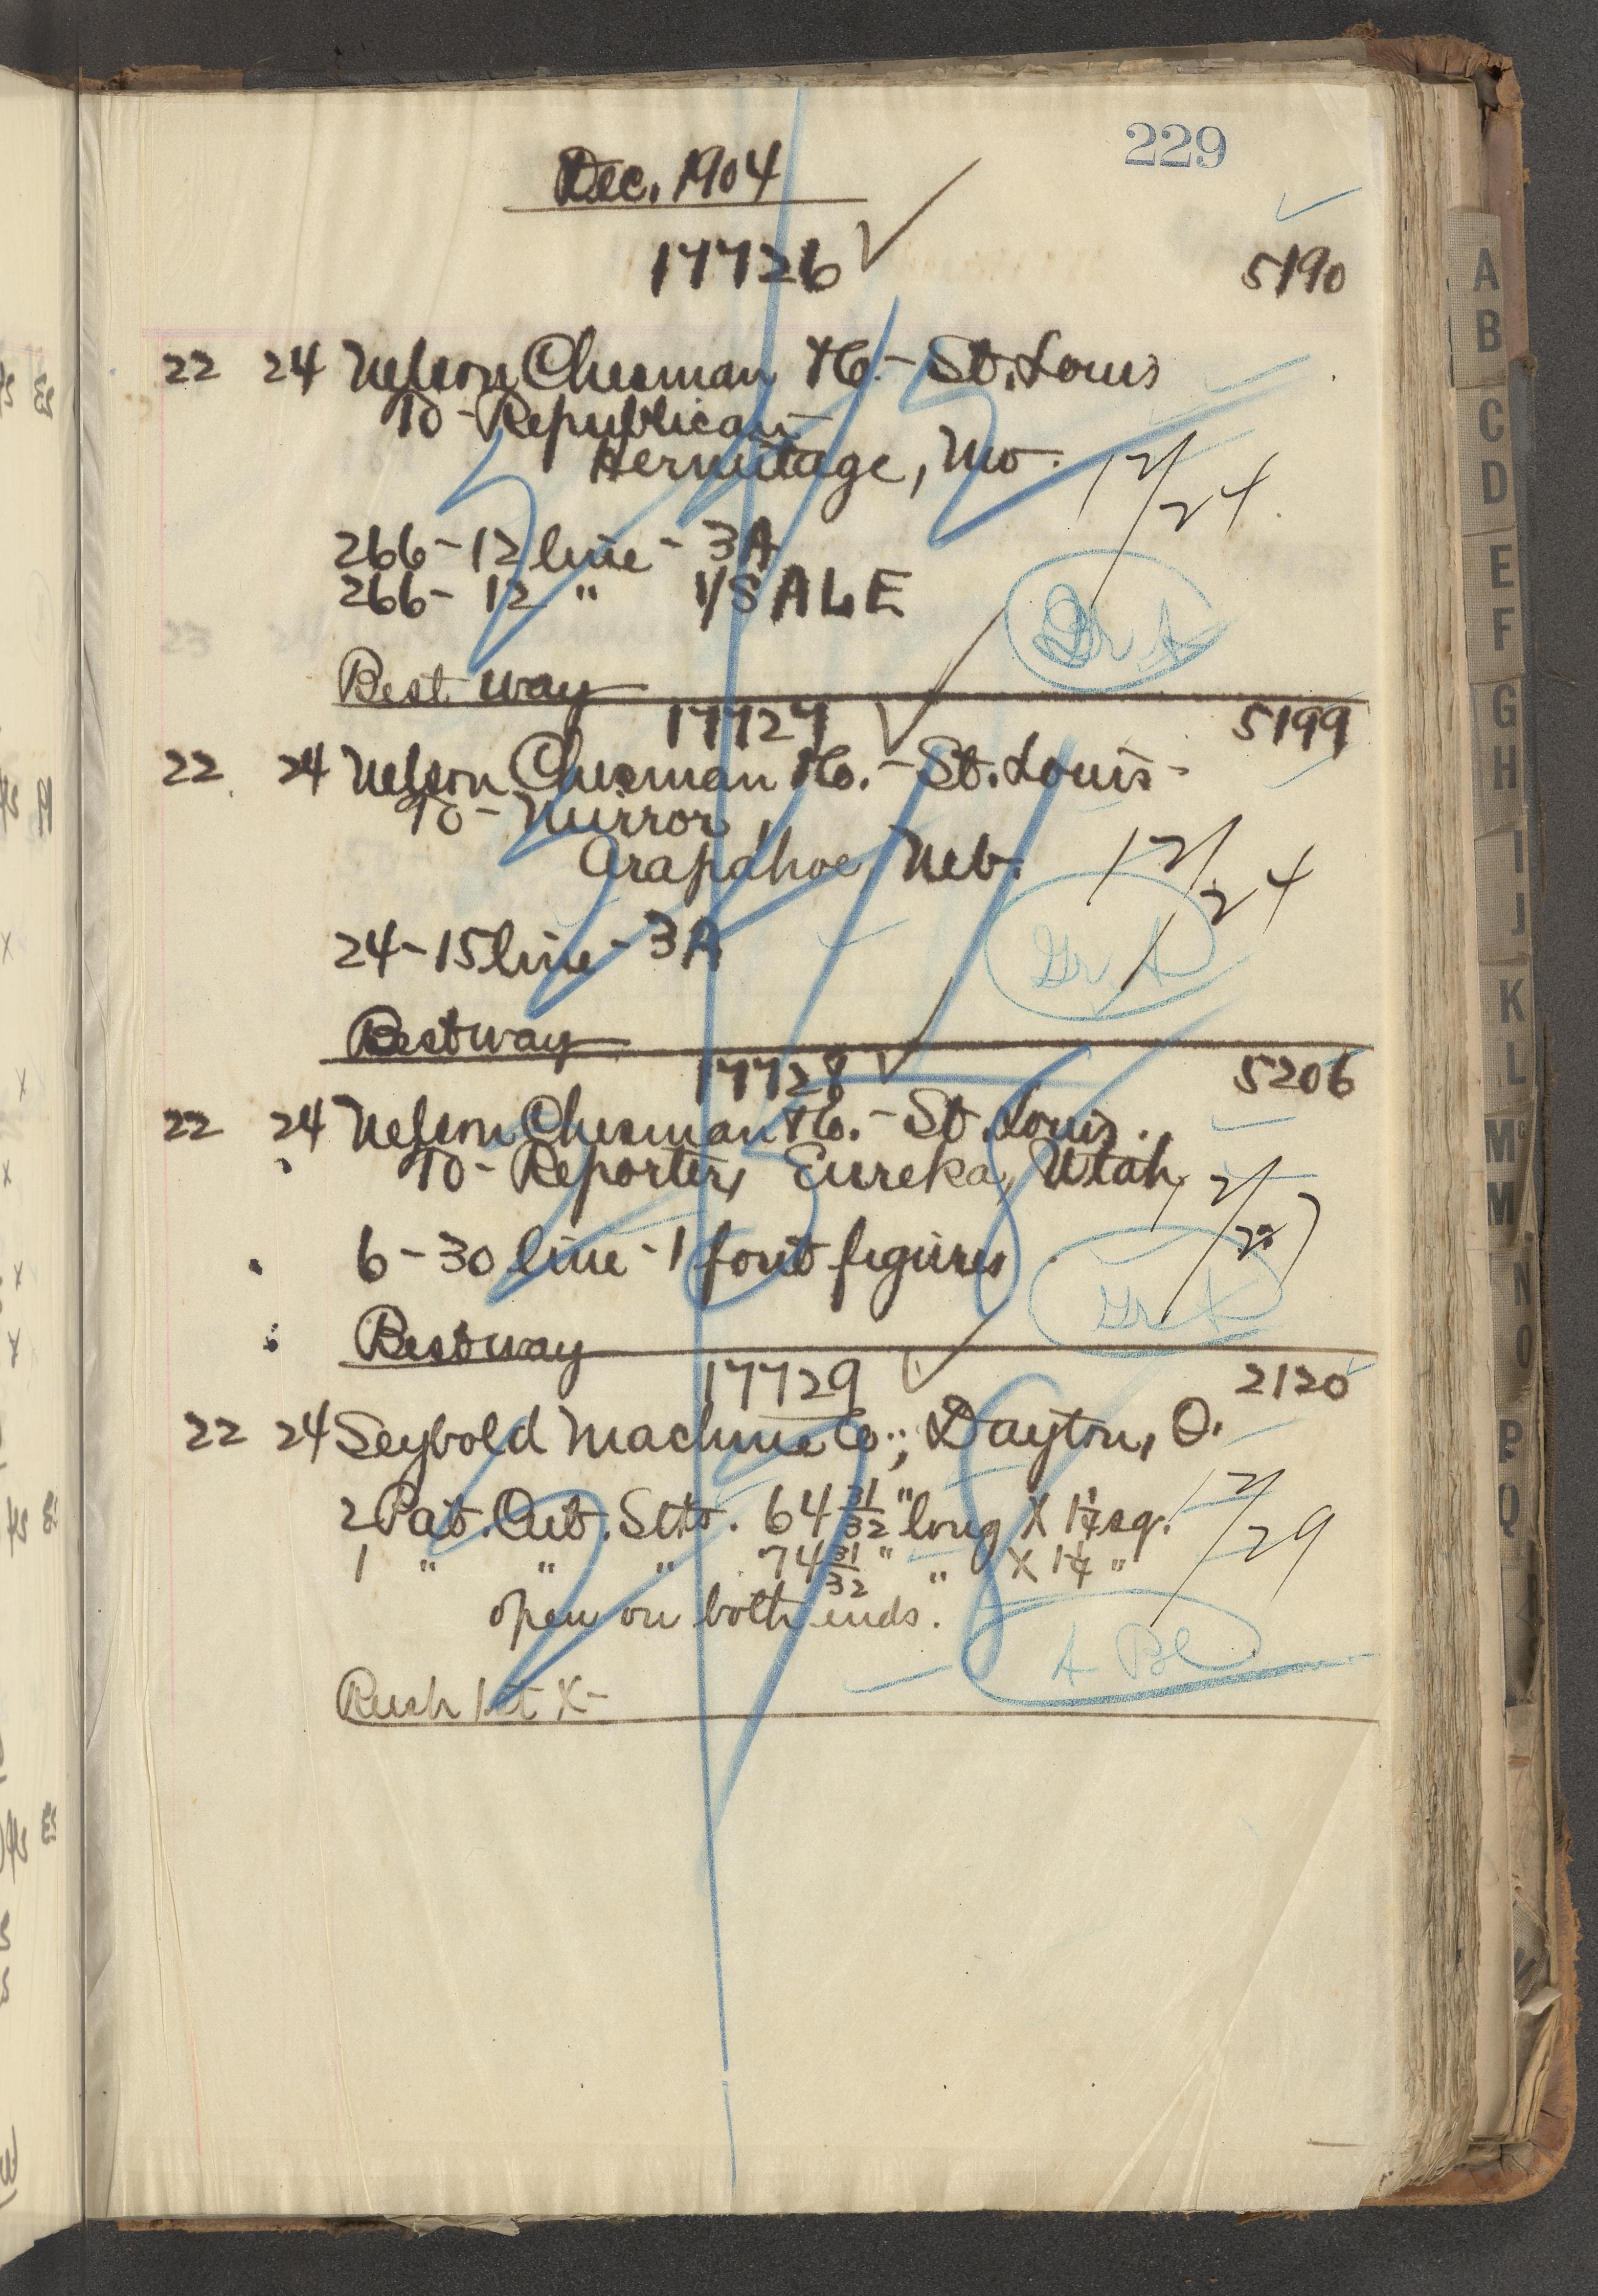 229
Dec. 1904
17726 ✓ 5190
22 24 Nelson Chesman & Co. - St. Louis
To - Republican
Hermitage, Mo.
12/24
266 - 12 line - 3A
266 - 12 " 1/SALE
Gr A
Best way
17727 ✓ 5199
22 24 Nelson Chesman & Co. - St. Louis -
To - Mirror,
Arapahoe, Neb.
12/24
24 - 15 line - 3A
Gr A
Best way
17728 ✓ 5206
22 24 Nelson Chesman & Co. - St. Louis.
To - Reporter, Eureka, Utah
12/27
6 - 30 line - 1 font figures
Gr A
Best way
17729 ✓ 2120
22 24 Seybold Machine Co., Dayton, O.
2 Pat. Cut. Stks. 64 31/32" long X 1 1/4 sq.
1 " " " 74 31/32" " X 1 1/4 "
12/29
open on both ends.
A Bl
Rush 1st X -
A
B
C
D
E
F
G
H
I
J
K
L
Mc
M
N
O
P
Q